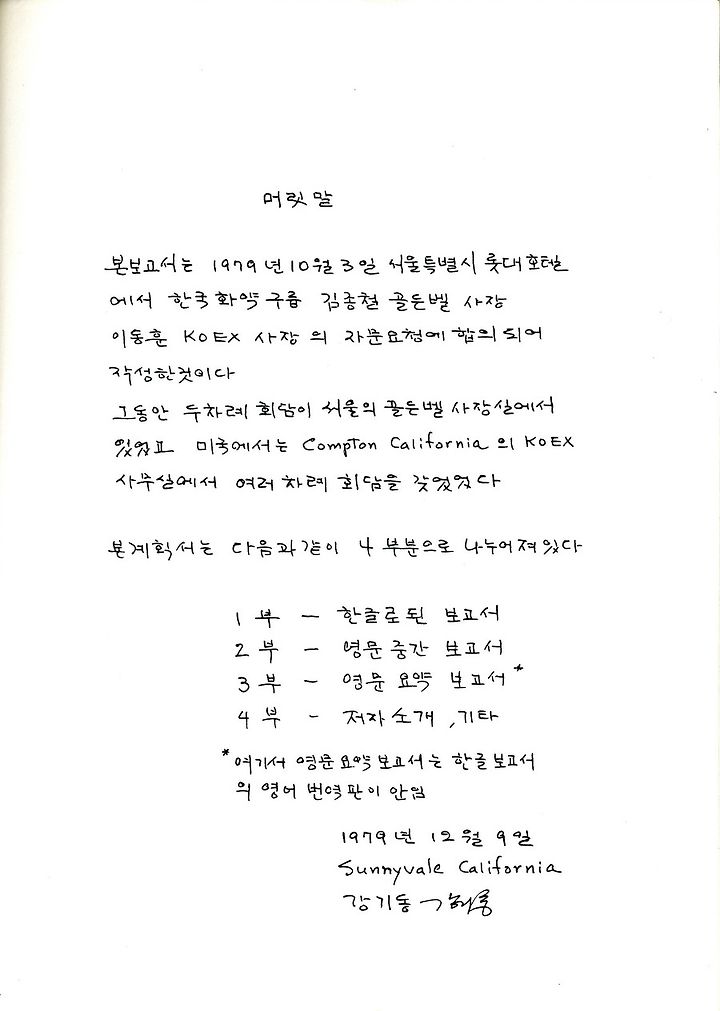 머릿말
본보고서는 1979년 10월 3일 서울특별시 롯데호텔
에서 한국화약 구릅 김종철 골든벨 사장
이동훈 KOEX 사장 의 자문요청에 합의 되어
작성한것이다
그동안 두차례 회담이 서울의 골든벨 사장실에서
있었고 미국에서는 Compton California 의 KOEX
사무실에서 여러 차례 회담을 갖었었다
본계획서는 다음과 같이 4 부분으로 나누어져 있다
1 부 - 한글로된 보고서
2 부 - 영문 중간 보고서
3 부 - 영문 요약 보고서*
4 부 - 저자 소개, 기타
*여기서 영문요약 보고서는 한글 보고서
의 영어 번역판이 안임
1979 년 12 월 9 일
Sunnyvale California
강기동